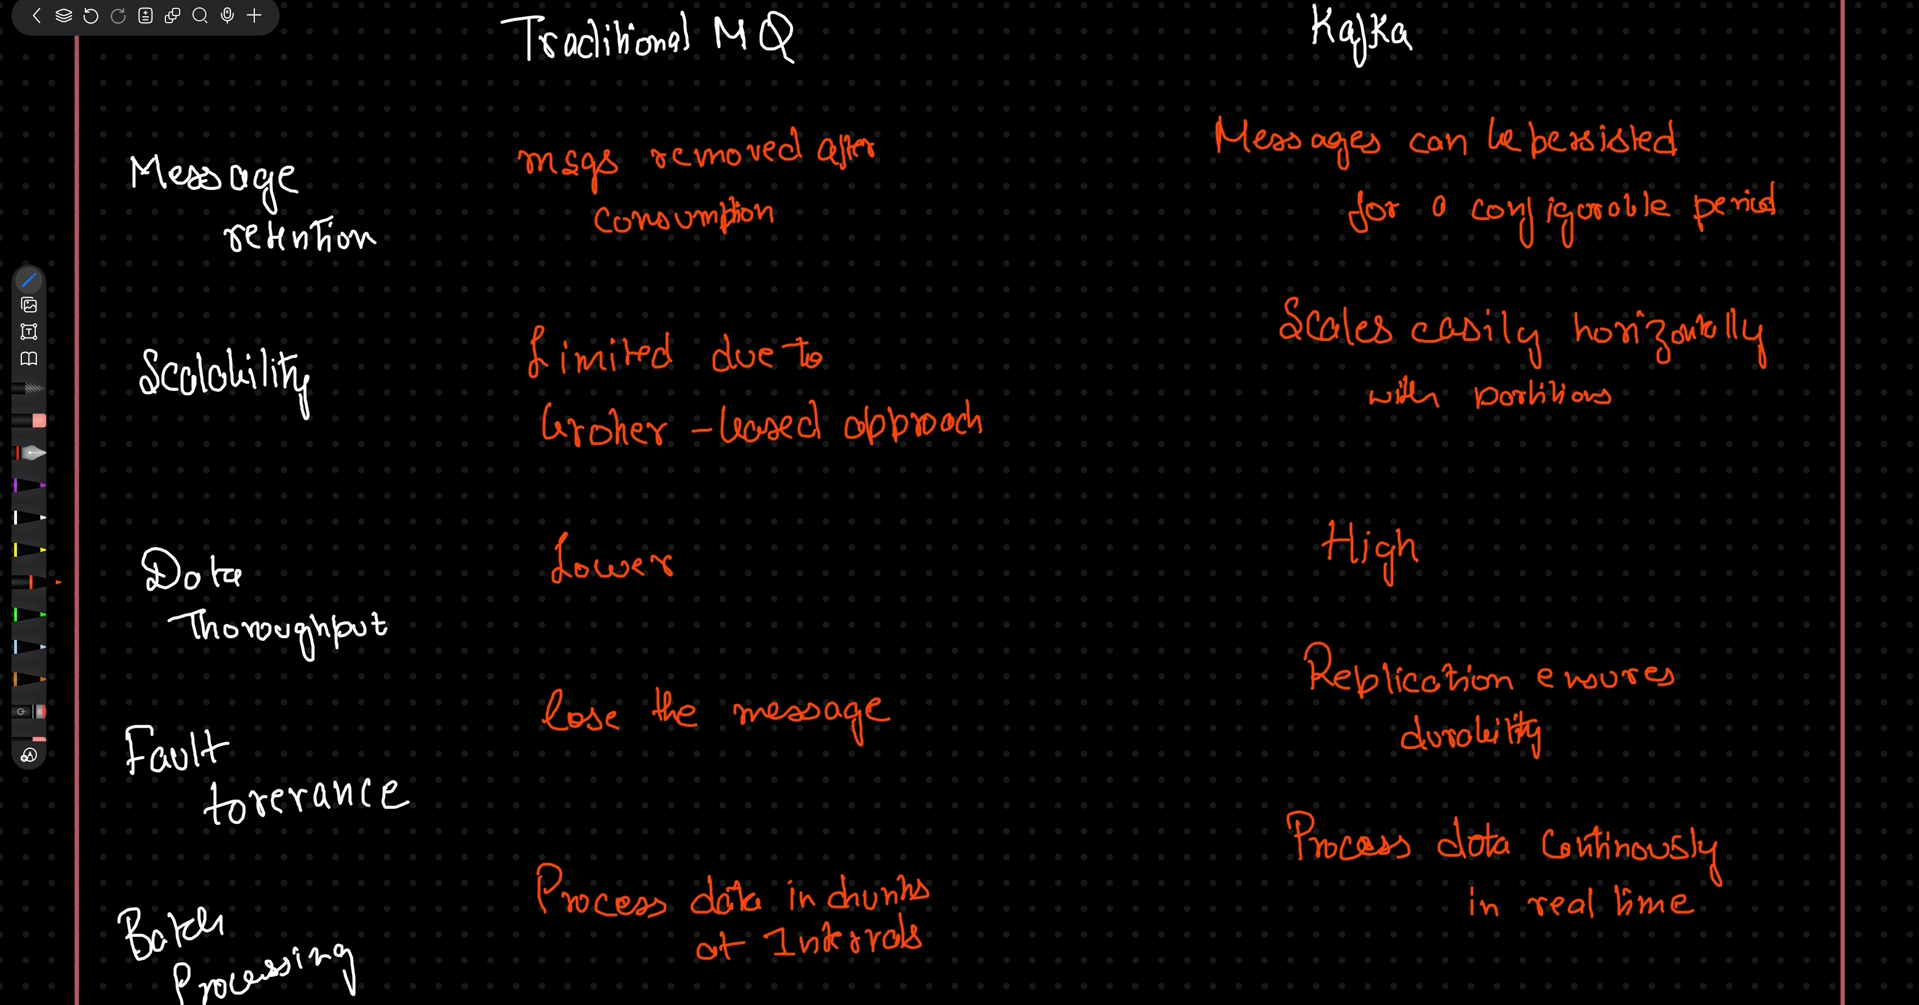 Traditional MQ
Kafka
Message
retention
msgs removed after
consumption
Messages can be persisted
for a configurable period
Scalability
Limited due to
broker - based approach
Scales easily horizontally
with partitions
Data
Thoroughput
Lower
High
Fault
torerance
lose the message
Replication ensures
durability
Batch
Processing
Process data in chunks
at Intervals
Process data continously
in real time